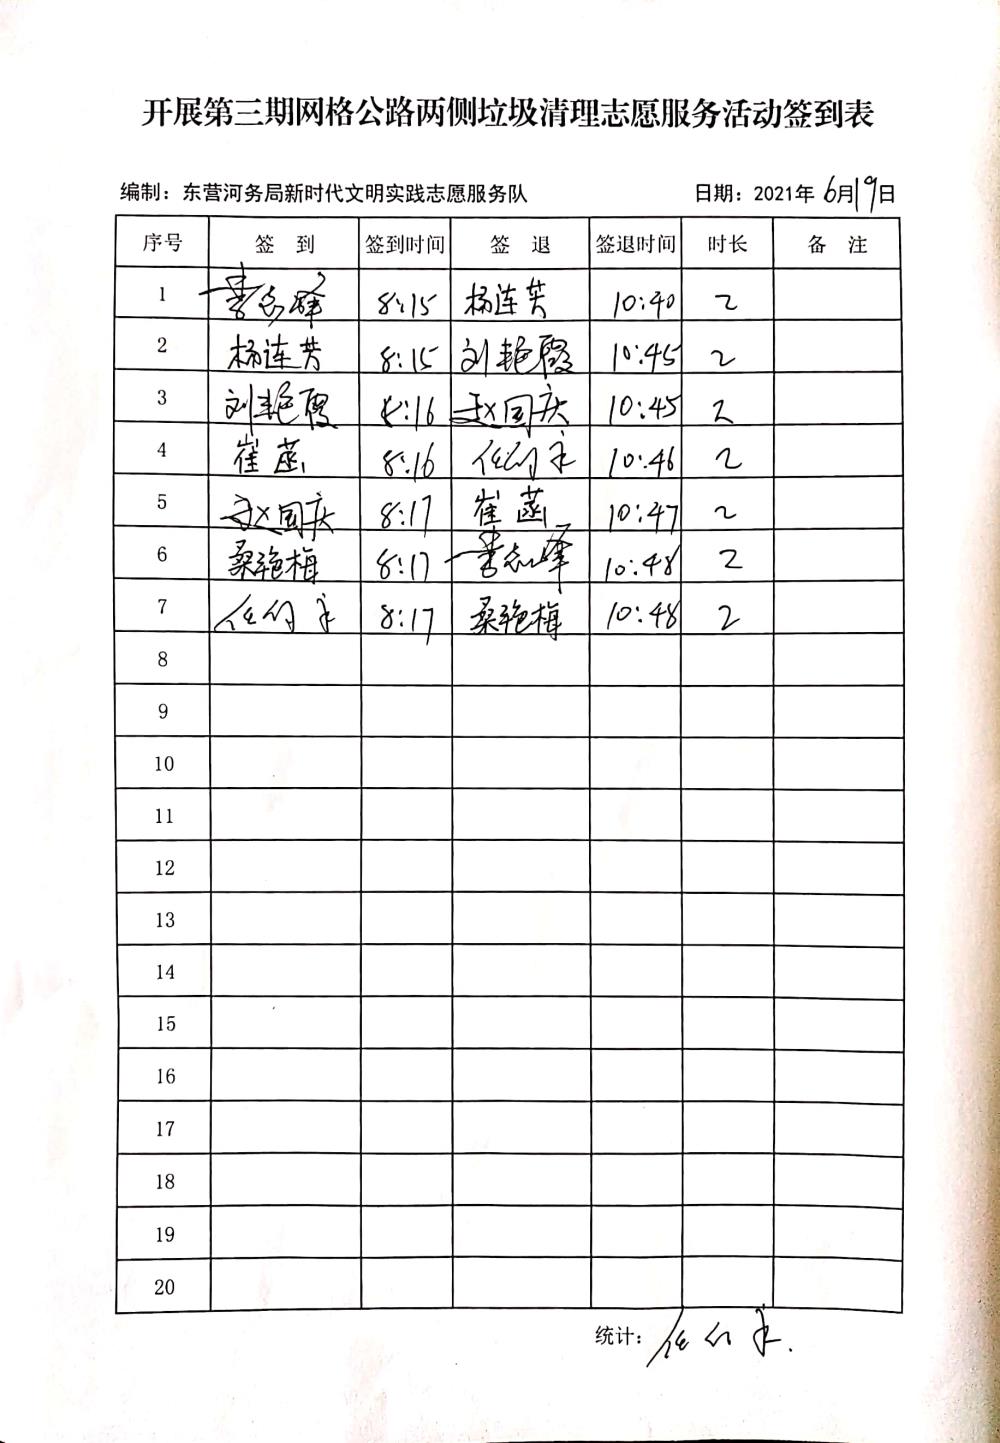 开展第三期网格公路两侧垃圾清理志愿服务活动签到表
编制：东营河务局新时代文明实践志愿服务队 日期：2021年6月19日
序号 签 到 签到时间 签 退 签退时间 时长 备 注
1 8:15 杨连芳 10:40 2
2 杨连芳 8:15 刘艳霞 10:45 2
3 刘艳霞 8:16 赵国庆 10:45 2
4 崔菡 8:16 10:46 2
5 赵国庆 8:17 崔菡 10:47 2
6 桑艳梅 8:17 10:48 2
7 8:17 桑艳梅 10:48 2
8
9
10
11
12
13
14
15
16
17
18
19
20
统计：